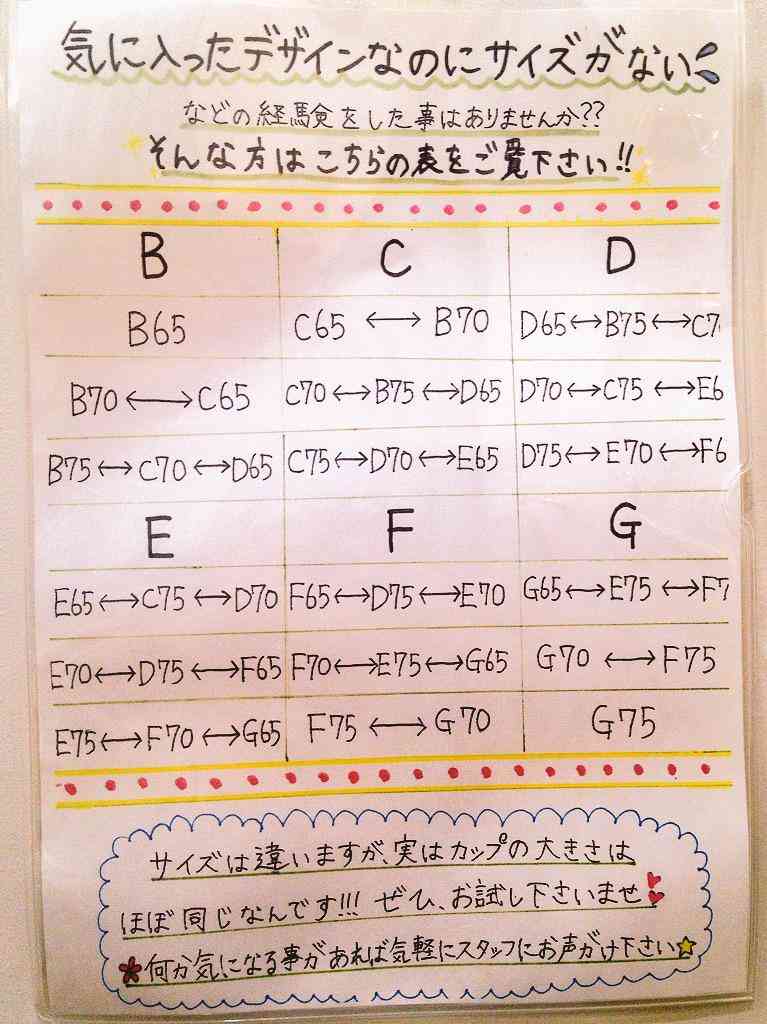 気に入ったデザインなのにサイズがない
などの経験をした事はありませんか??
そんな方はこちらの表をご覧下さい!!
B C D
B65 C65 ⟷ B70 D65⟷B75⟷C7
B70⟷C65 C70⟷B75⟷D65 D70⟷C75⟷E6
B75⟷C70⟷D65 C75⟷D70⟷E65 D75⟷E70⟷F6
E F G
E65⟷C75⟷D70 F65⟷D75⟷E70 G65⟷E75⟷F7
E70⟷D75⟷F65 F70⟷E75⟷G65 G70⟷F75
E75⟷F70⟷G65 F75⟷G70 G75
サイズは違いますが、実はカップの大きさは
ほぼ同じなんです!!! ぜひ、お試し下さいませ
何か気になる事があれば気軽にスタッフにお声がけ下さい